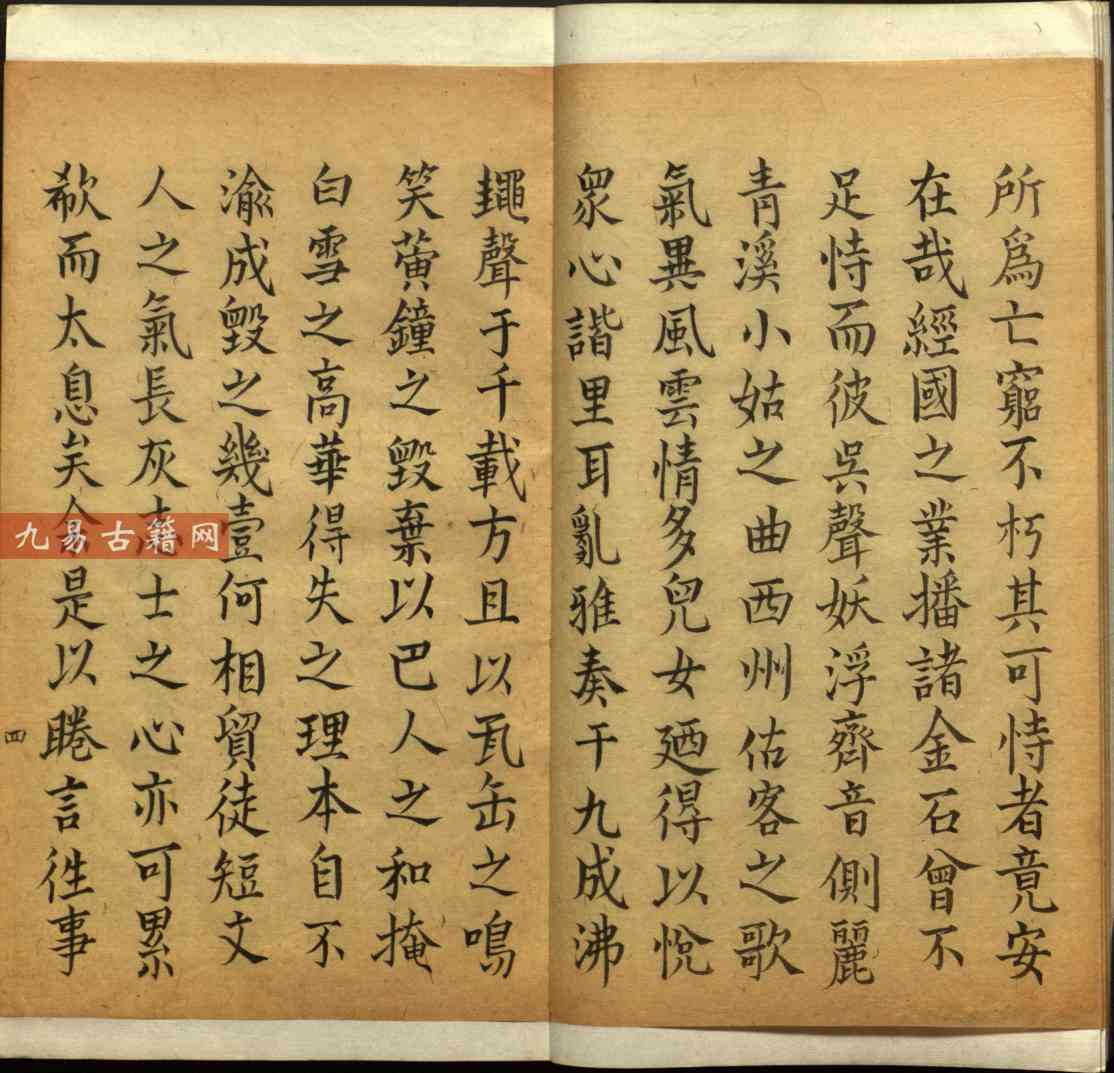 所爲亡窮不朽其可恃者竟安
在哉經國之業播諸金石曾不
足恃而彼吳聲妖浮齊音側麗
青溪小姑之曲西州估客之歌
氣異風雲情多兒女廼得以悅
衆心諧里耳亂雅奏于九成沸
蠅聲于千載方且以瓦缶之鳴
笑黃鐘之毀棄以巴人之和掩
白雪之高華得失之理本自不
渝成毀之幾壹何相貿徒短文
人之氣長灰志士之心亦可累
欷而太息矣余是以睠言徃事
四
九易古籍网